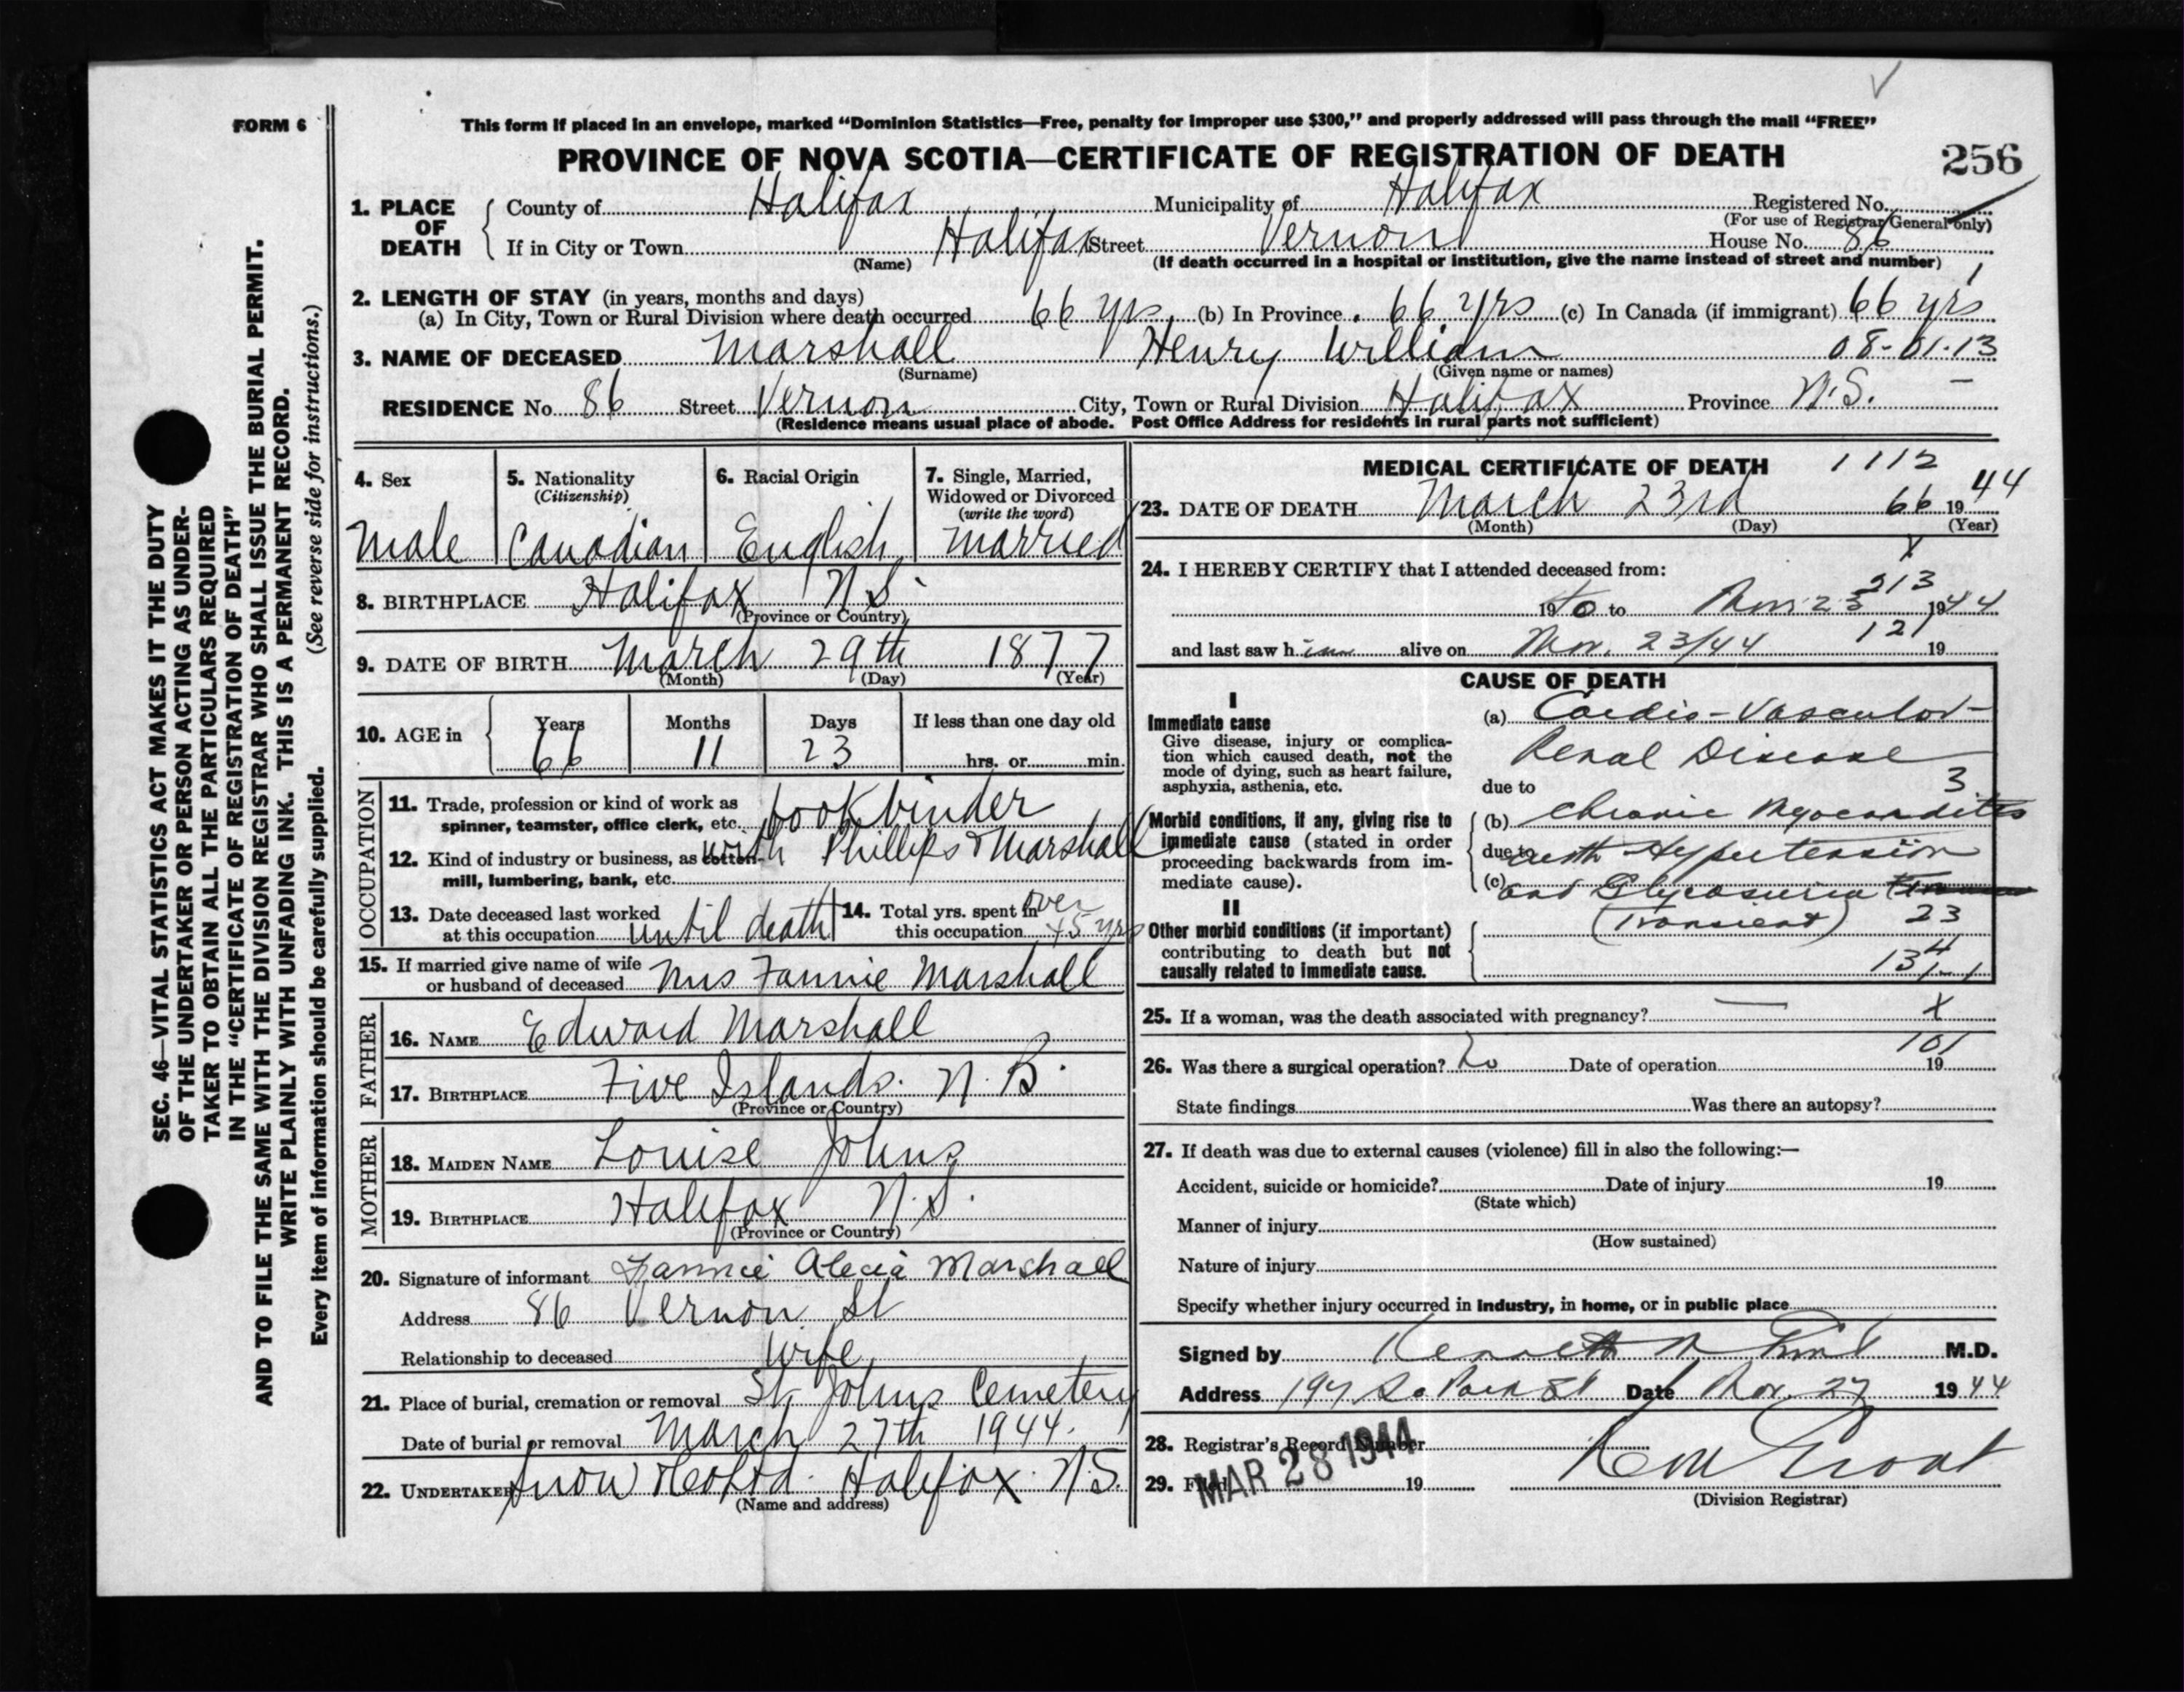 FORM 6
This form if placed in an envelope, marked “Dominion Statistics—Free, penalty for improper use $300,” and properly addressed will pass through the mail “FREE”
PROVINCE OF NOVA SCOTIA—CERTIFICATE OF REGISTRATION OF DEATH
256
1. PLACE OF DEATH
County of Halifax Municipality of Halifax Registered No.
(For use of Registrar General only)
If in City or Town Halifax Street Vernon House No. 86
(Name) (If death occurred in a hospital or institution, give the name instead of street and number)
2. LENGTH OF STAY (in years, months and days)
(a) In City, Town or Rural Division where death occurred 66 yrs. (b) In Province 66 yrs (c) In Canada (if immigrant) 66 yrs
3. NAME OF DECEASED Marshall Henry William 08-01-13
(Surname) (Given name or names)
RESIDENCE No. 86 Street Vernon City, Town or Rural Division Halifax Province N.S.
(Residence means usual place of abode. Post Office Address for residents in rural parts not sufficient)
4. Sex
Male
5. Nationality
(Citizenship)
Canadian
6. Racial Origin
English
7. Single, Married,
Widowed or Divorced
(write the word)
Married
8. BIRTHPLACE Halifax N.S.
(Province or Country)
9. DATE OF BIRTH March 29th 1877
(Month) (Day) (Year)
10. AGE in
Years Months Days If less than one day old
66 11 23 hrs. or min.
OCCUPATION
11. Trade, profession or kind of work as
spinner, teamster, office clerk, etc. bookbinder
12. Kind of industry or business, as cotton- with Phillips & Marshall
mill, lumbering, bank, etc.
13. Date deceased last worked
at this occupation until death
14. Total yrs. spent in over
this occupation 45 yrs
15. If married give name of wife
or husband of deceased Mrs Fannie Marshall
FATHER
16. NAME Edward Marshall
17. BIRTHPLACE Five Islands. N.B.
(Province or Country)
MOTHER
18. MAIDEN NAME Louise Johns
19. BIRTHPLACE Halifax N.S.
(Province or Country)
20. Signature of informant Fannie Alecia Marshall
Address 86 Vernon St
Relationship to deceased Wife
21. Place of burial, cremation or removal St. Johns Cemetery
Date of burial or removal March 27th 1944.
22. UNDERTAKER Snow & Co Ltd. Halifax. N.S.
(Name and address)
MEDICAL CERTIFICATE OF DEATH 1112
23. DATE OF DEATH March 23rd 66 1944
(Month) (Day) (Year)
24. I HEREBY CERTIFY that I attended deceased from:
213
1940 to Mar. 23 1944
and last saw him alive on Mar. 23/44 121 19
CAUSE OF DEATH
I
Immediate cause
Give disease, injury or complica-
tion which caused death, not the
mode of dying, such as heart failure,
asphyxia, asthenia, etc.
(a) Cardio-Vascular-
Renal Disease
due to 3
Morbid conditions, if any, giving rise to
immediate cause (stated in order
proceeding backwards from im-
mediate cause).
(b) Chronic Myocarditis
due to with Hypertension
(c) and Glycosuria
(Transient) 23
II
Other morbid conditions (if important)
contributing to death but not
causally related to immediate cause.
25. If a woman, was the death associated with pregnancy? — X
26. Was there a surgical operation? No Date of operation 101 19
State findings Was there an autopsy?
27. If death was due to external causes (violence) fill in also the following:—
Accident, suicide or homicide? Date of injury 19
(State which)
Manner of injury
(How sustained)
Nature of injury
Specify whether injury occurred in industry, in home, or in public place
Signed by Kenneth M.D.
Address 197 So Park St Date Mar. 27 1944
28. Registrar's Record Number
29. Filed 19
MAR 28 1944
(Division Registrar)
SEC. 46—VITAL STATISTICS ACT MAKES IT THE DUTY
OF THE UNDERTAKER OR PERSON ACTING AS UNDER-
TAKER TO OBTAIN ALL THE PARTICULARS REQUIRED
IN THE “CERTIFICATE OF REGISTRATION OF DEATH”
AND TO FILE THE SAME WITH THE DIVISION REGISTRAR WHO SHALL ISSUE THE BURIAL PERMIT.
WRITE PLAINLY WITH UNFADING INK. THIS IS A PERMANENT RECORD.
Every item of information should be carefully supplied. (See reverse side for instructions.)